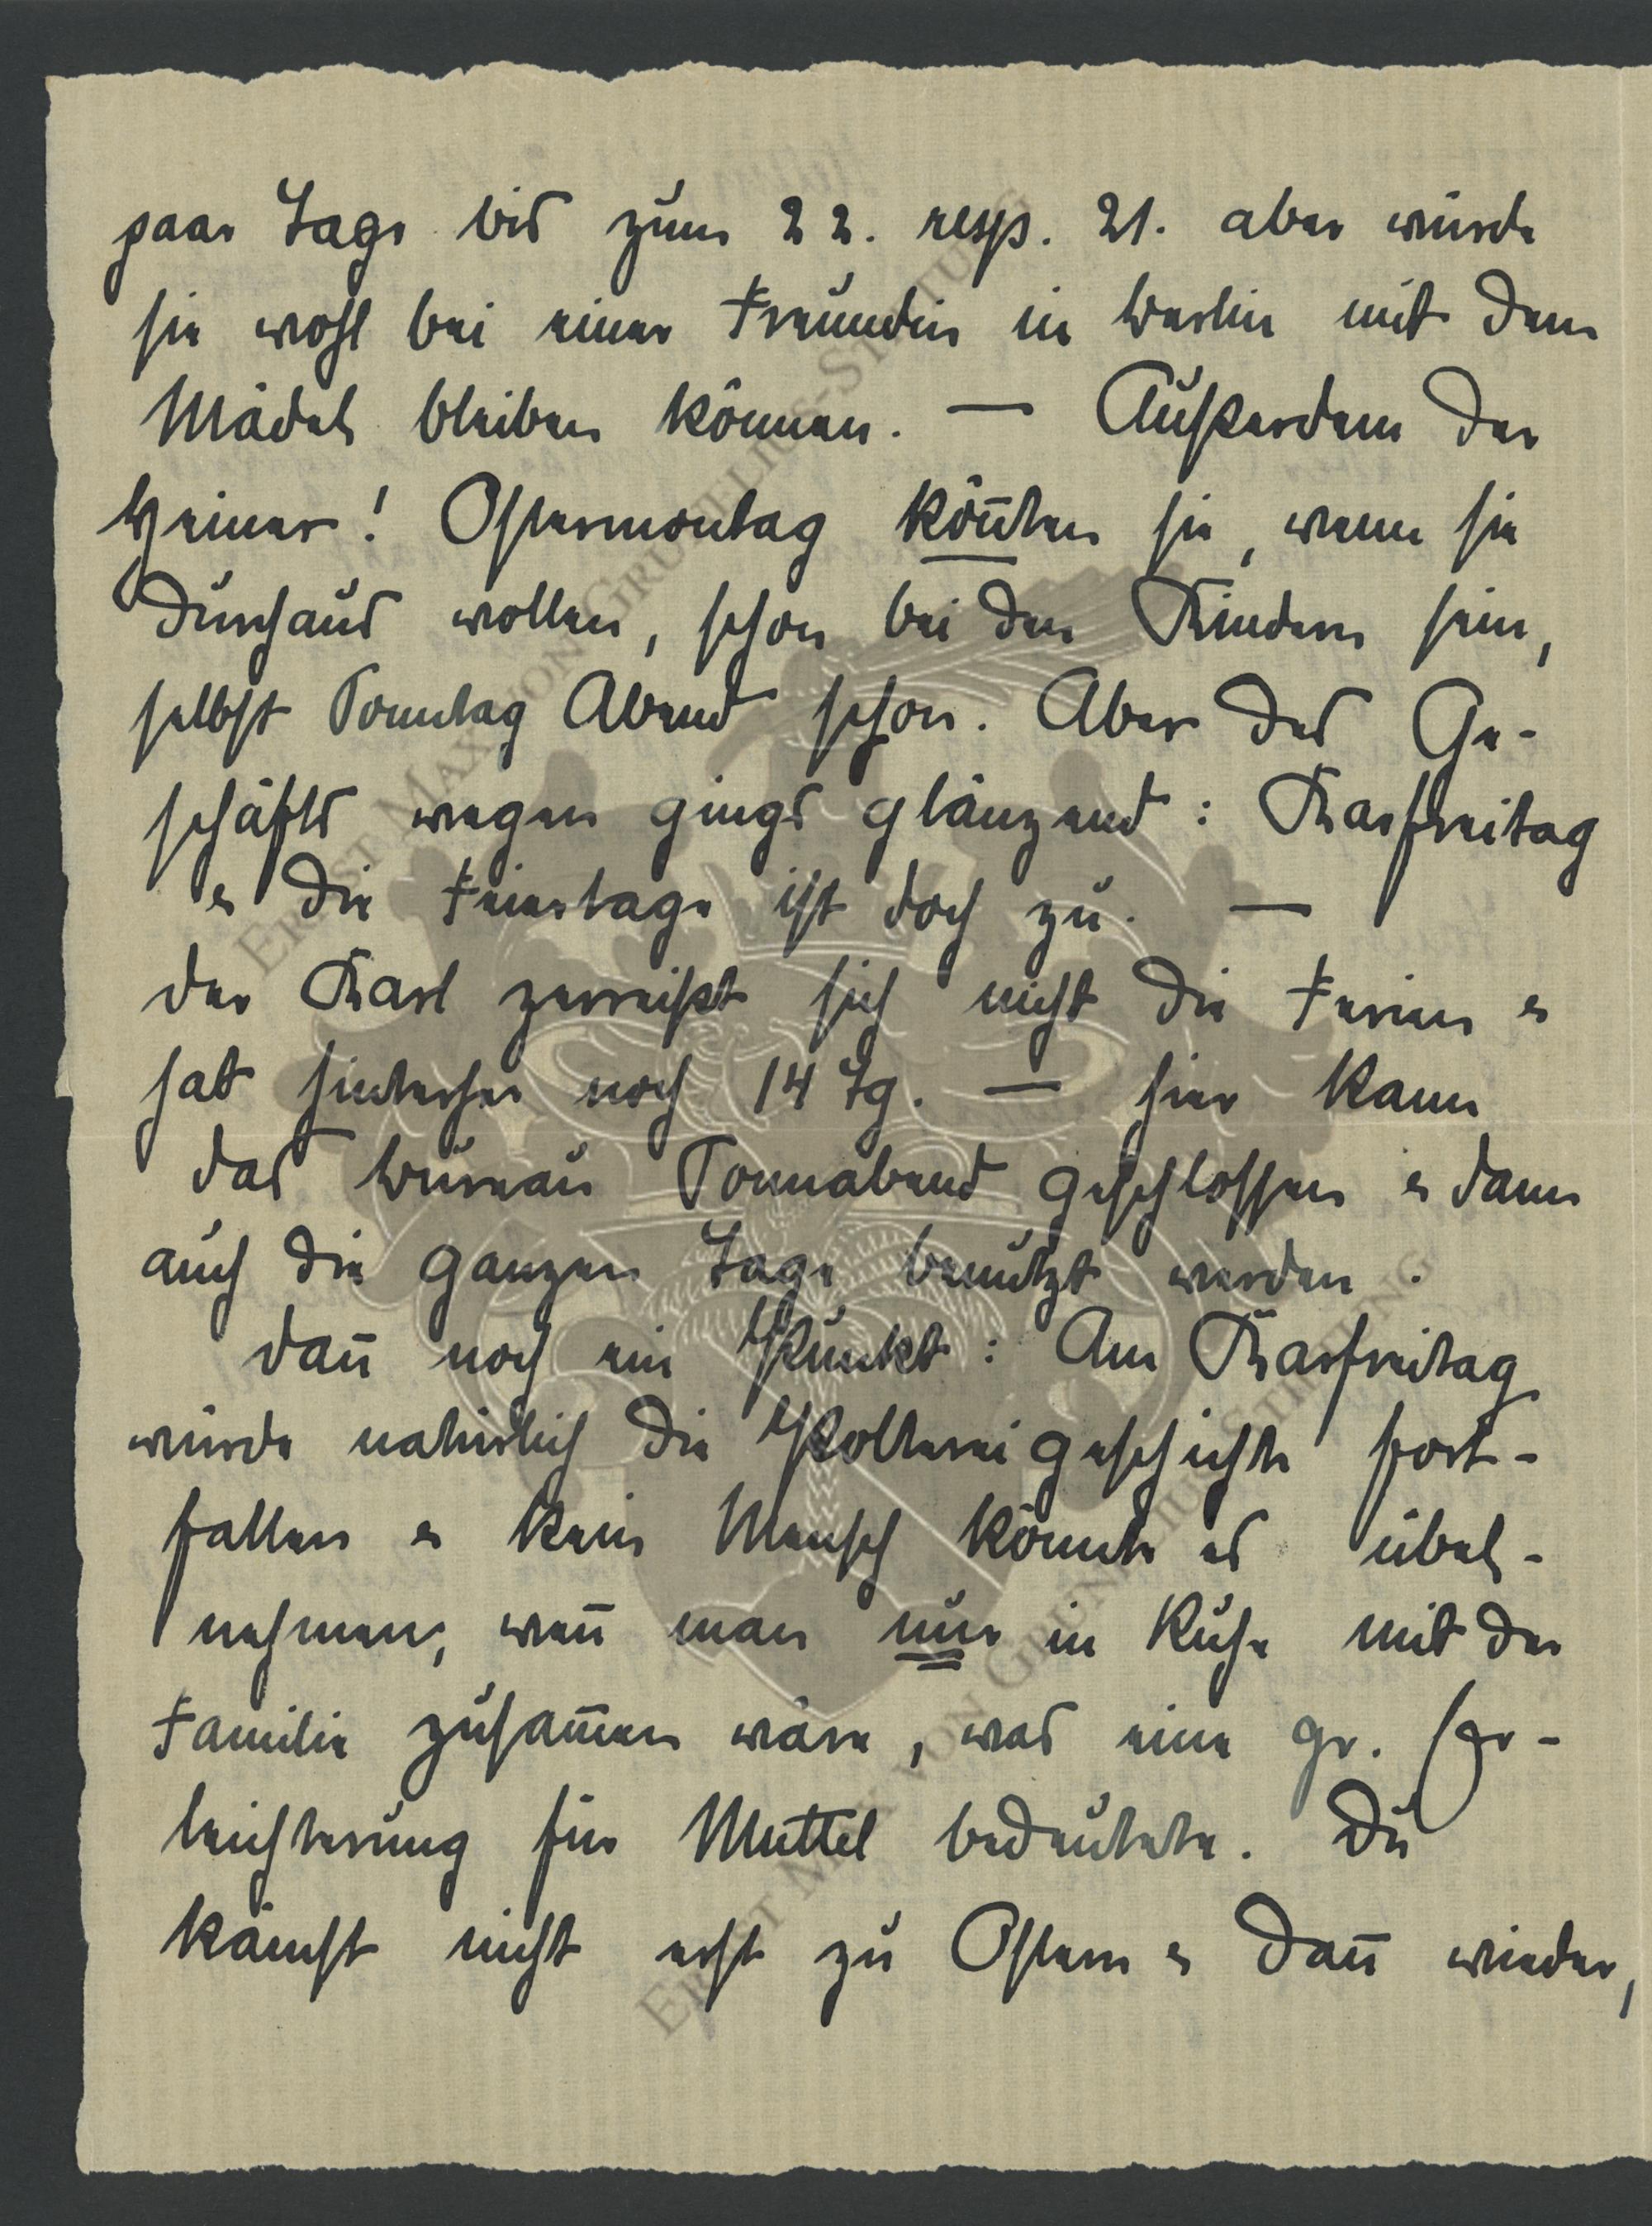 paar Tage bis zum 22. resp. 21. aber würde
sie wohl bei einer Freundin in Berlin mit dem
Mädel bleiben können. — Außerdem der
Heiner! Ostermontag kön̄ten sie, wenn sie
durchaus wollen, schon bei den Kindern sein,
selbst Sonntag Abend schon. Aber des Ge-
schäfts wegen gings glänzend: Karfreitag
& die Feiertage ist doch zu. —
der Karl zerreißt sich nicht die Ferien &
hat hinterher noch 14 Tg. — hier kann
das Büreau Sonnabend geschlossen & dann
auch die ganzen Tage benützt werden.
dan̄ noch ein Punkt: Am Karfreitag
würde natürlich die Poltereigeschichte fort-
fallen & kein Mensch könnte es übel-
nehmen, wen̄ man nur in Ruhe mit der
Familie zusam̄en wäre, was eine gr. Er-
leichterung für Muttel bedeutete. Du
kämst nicht erst zu Ostern & dan̄ wieder,
ERNST MAX VON GRUNELIUS-STIFTUNG
ERNST MAX VON GRUNELIUS-STIFTUNG